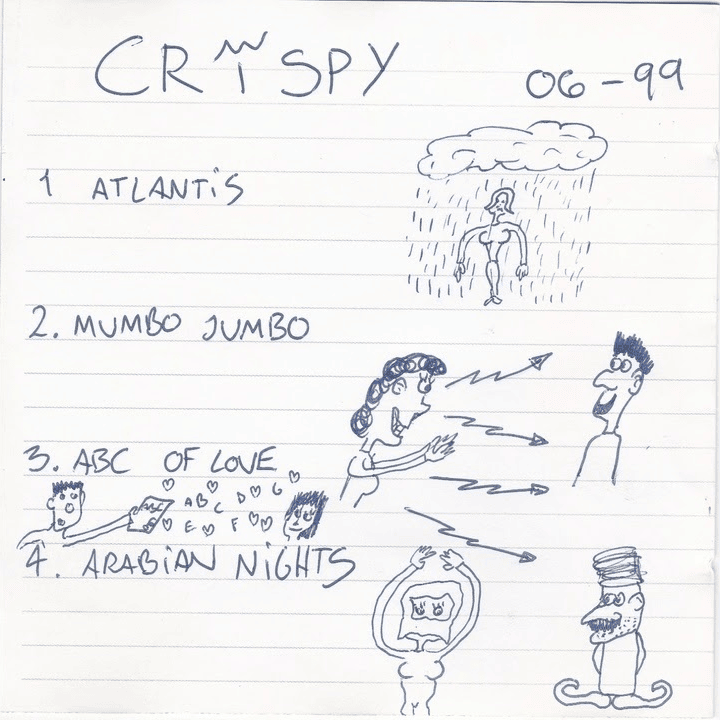 CRISPY 06-99
1 ATLANTIS
2. MUMBO JUMBO
3. ABC OF LOVE
ABC
A B C D G
E F
4. ARABIAN NIGHTS